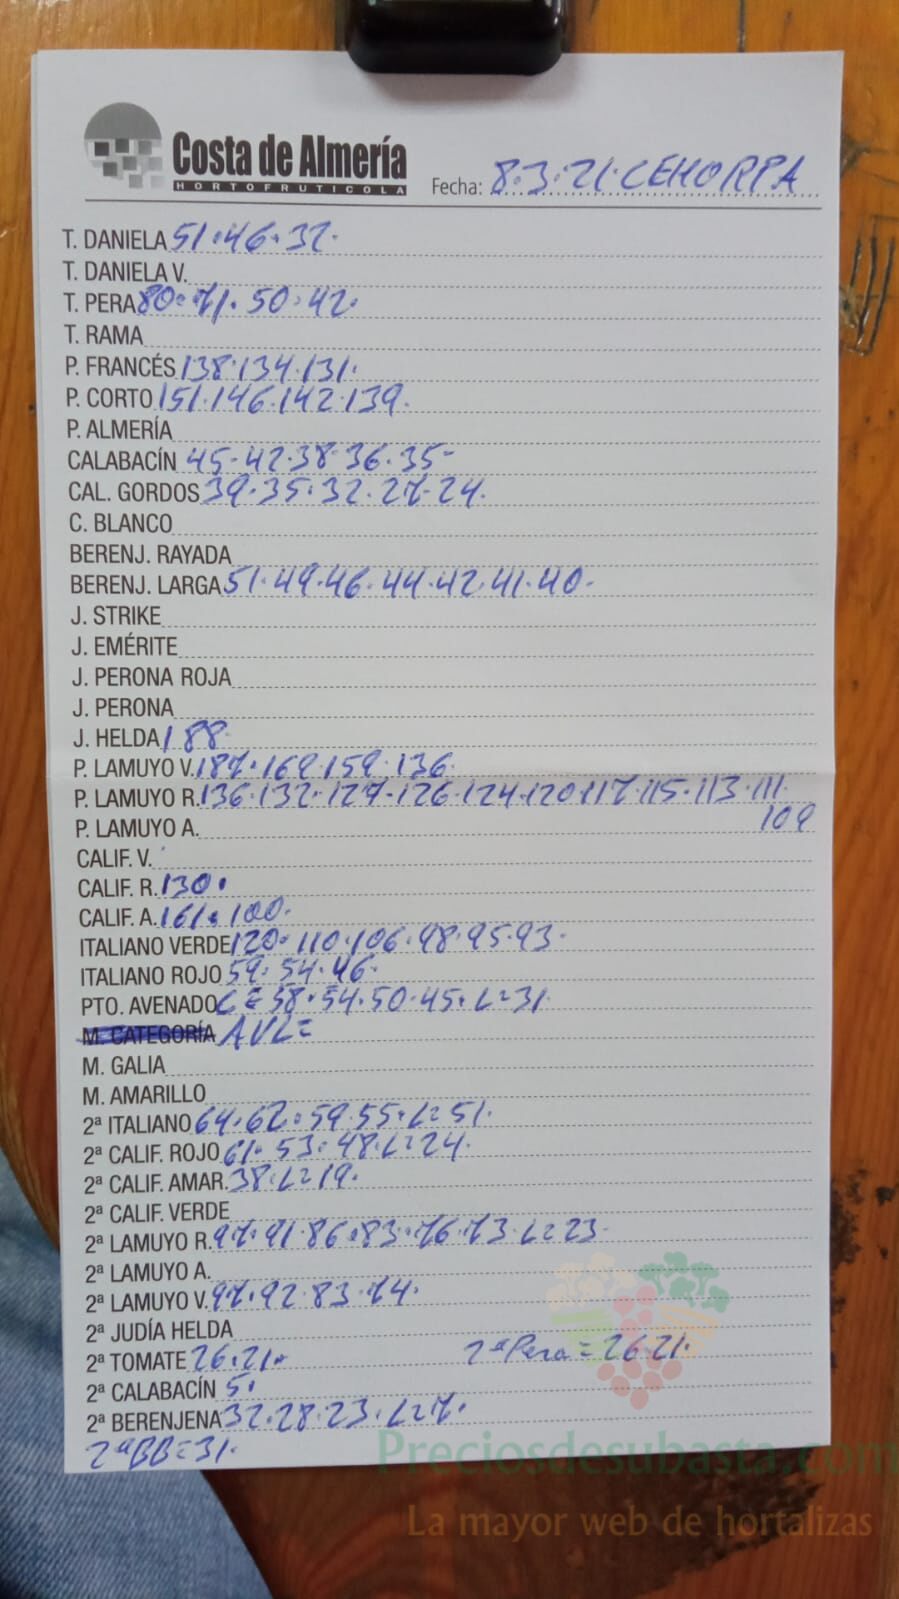 Costa de Almería
HORTOFRUTICOLA
Fecha: 8.3.21. CEHORPA
T. DANIELA 51.46.32.
T. DANIELA V.
T. PERA 80.71.50.42.
T. RAMA
P. FRANCÉS 138.134.131.
P. CORTO 151.146.142.139.
P. ALMERÍA
CALABACÍN 45.42.38.36.35-
CAL. GORDOS 39.35.32.27.24.
C. BLANCO
BERENJ. RAYADA
BERENJ. LARGA 51.49.46.44.42.41.40.
J. STRIKE
J. EMÉRITE
J. PERONA ROJA
J. PERONA
J. HELDA 188.
P. LAMUYO V. 187.169.159.136.
P. LAMUYO R. 136.132.127.126.124.120.117.115.113.111.
109
P. LAMUYO A.
CALIF. V.
CALIF. R. 130.
CALIF. A. 161.100.
ITALIANO VERDE 120.110.106.98.95.93.
ITALIANO ROJO 59.54.46.
PTO. AVENADO C=58.54.50.45.L=31.
M. CATEGORÍA AVL=
M. GALIA
M. AMARILLO
2ª ITALIANO 64.62.59.55.L=51.
2ª CALIF. ROJO 61.53.48.L=24.
2ª CALIF. AMAR. 38.L=19.
2ª CALIF. VERDE
2ª LAMUYO R. 97.91.86.83.76.73.L=23.
2ª LAMUYO A.
2ª LAMUYO V. 97.92.83.74.
2ª JUDÍA HELDA
2ª TOMATE 26.21. 2ª Pera=26.21.
2ª CALABACÍN 5.
2ª BERENJENA 32.28.23.L=7.
2ªBB=31.
Preciosdesubasta.com
La mayor web de hortalizas